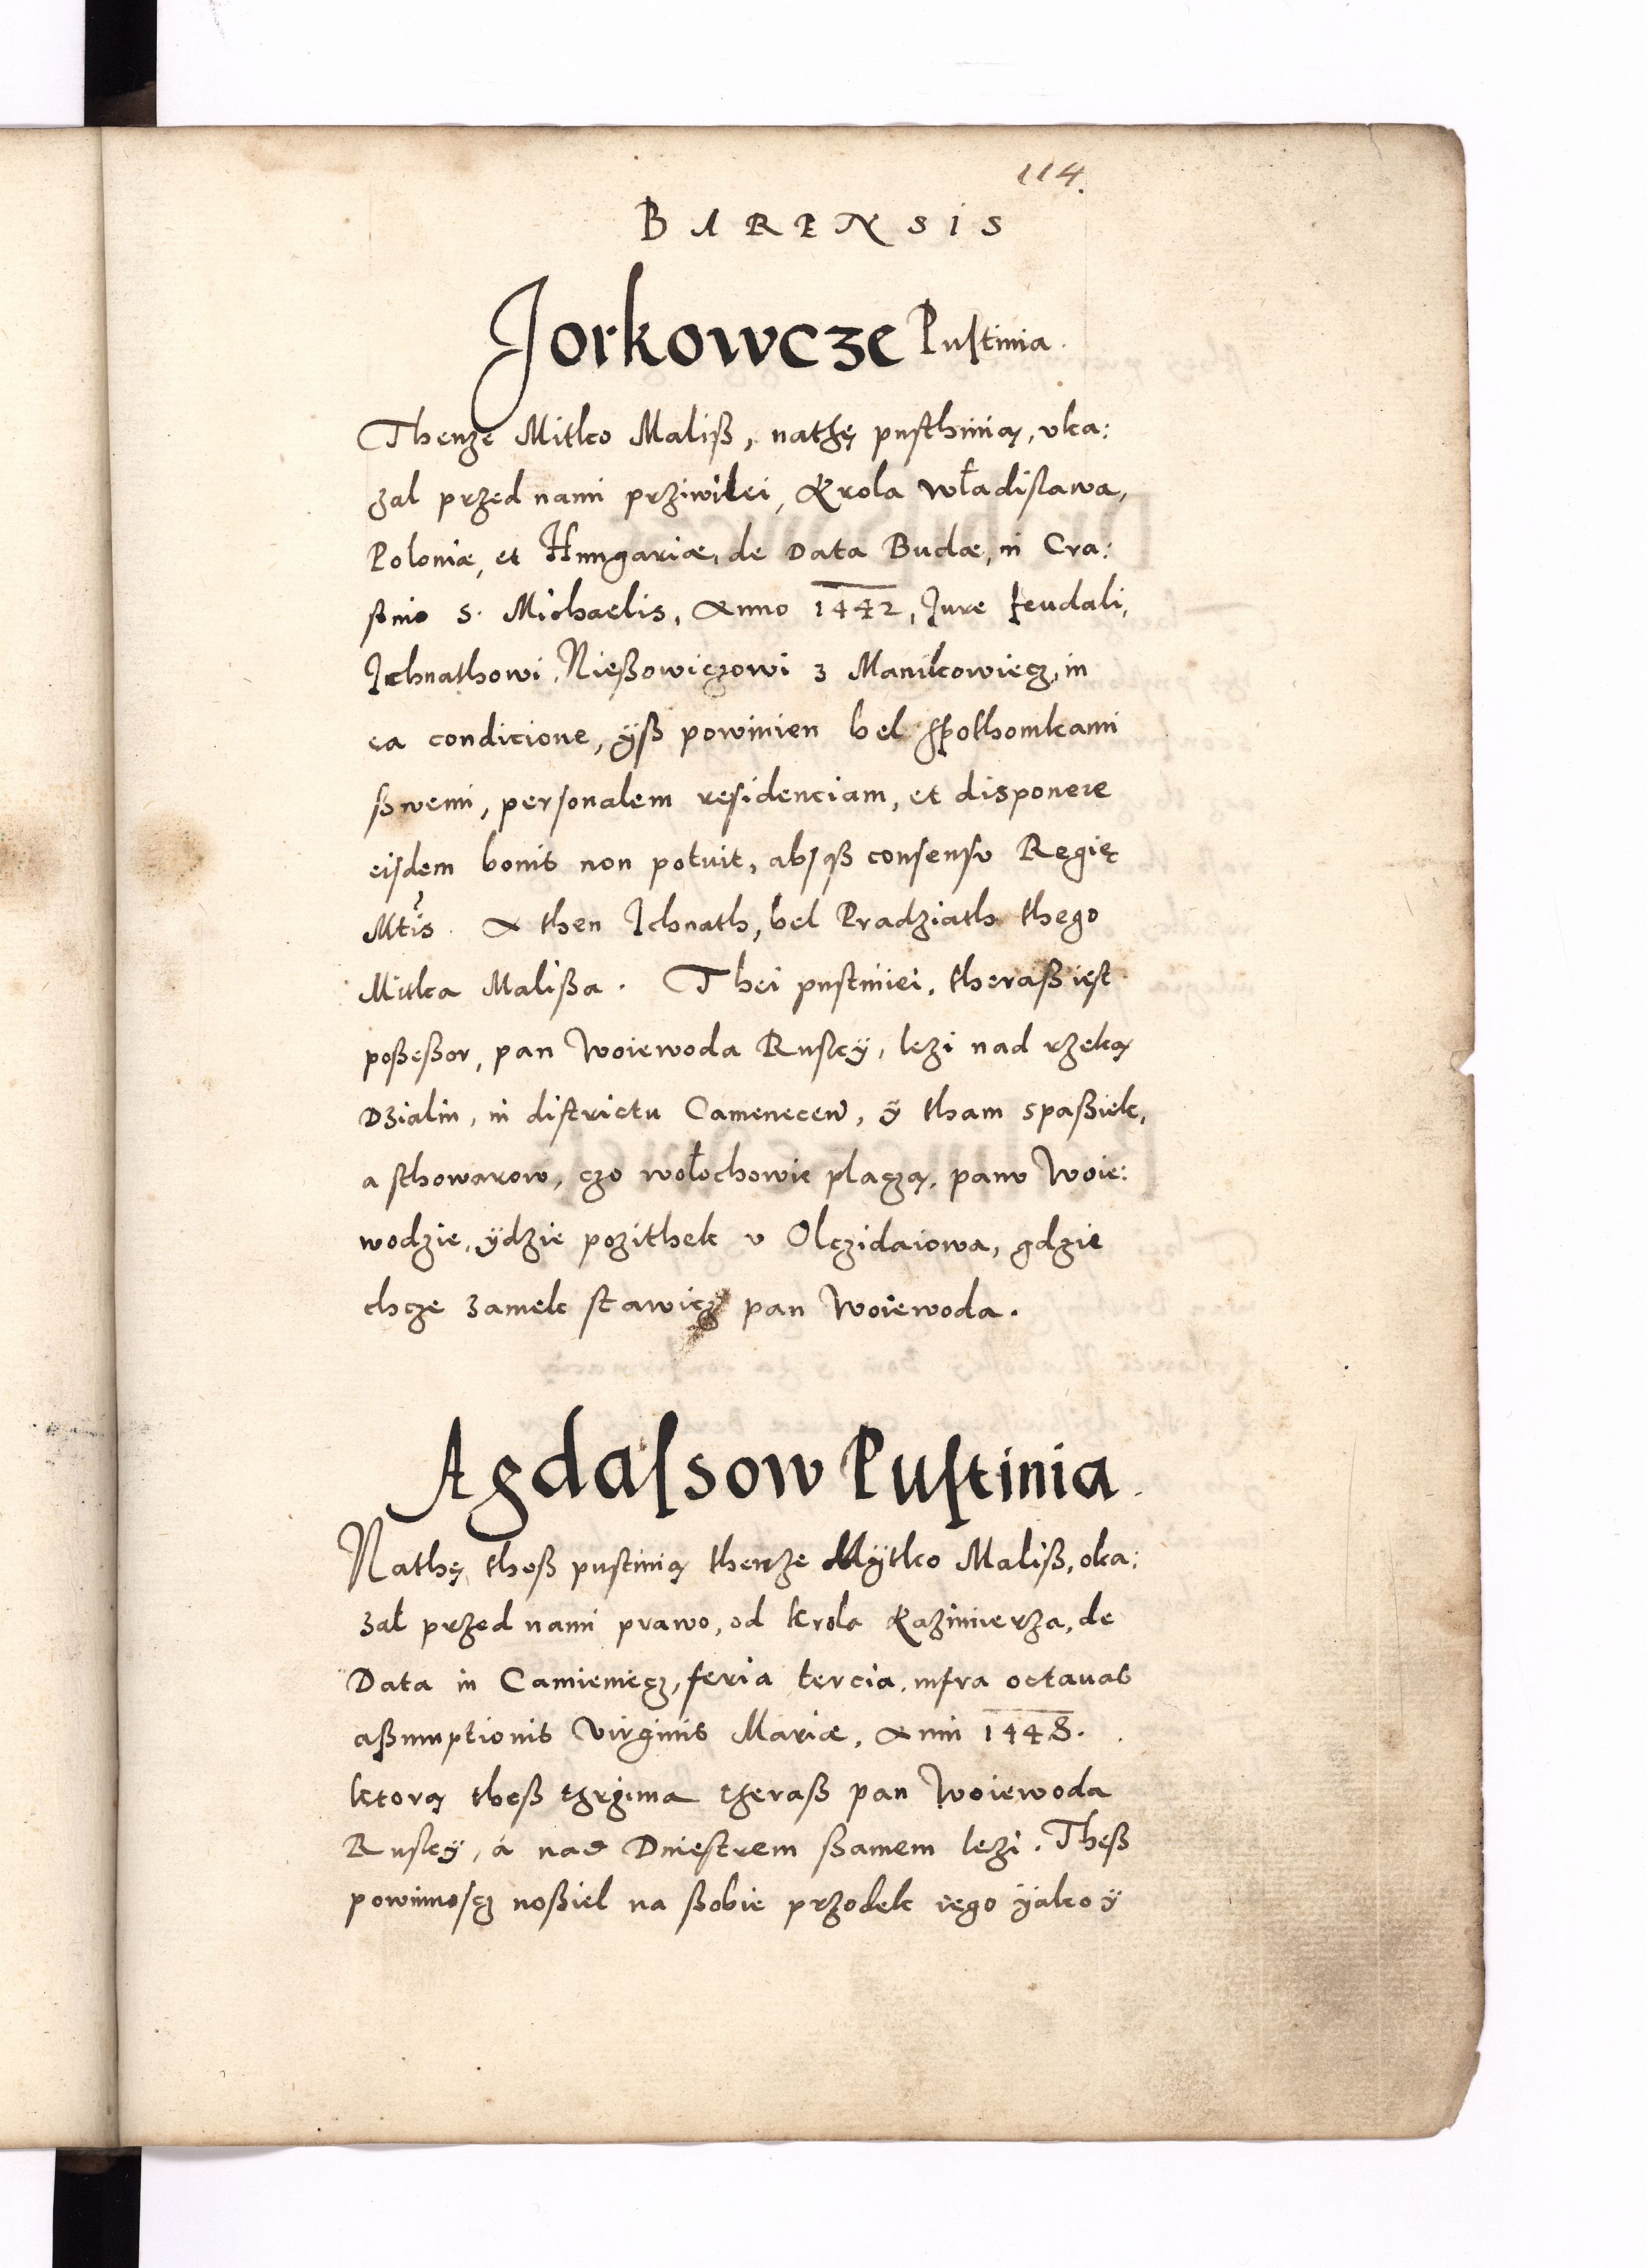 114.
BARENSIS
Jorkowcze Pustinia.
Thenze Mitko Maliß, nathę pusthinią, vka:
zal przed nami prziwilei, Krola władislawa,
Poloniæ, et Hungariæ, de Data Budæ, in Cra:
stino S. Michaelis, Anno 1442, Jure feudali,
Ichnathowi Nießowiczowi z Manikowiecz, in
ea condicione, ÿß powinien bel spothomkami
ßwemi, personalem residenciam, et disponere
eisdem bonis non potuit, absqß consensv Regię
Mtis. A then Ichnath, bel Pradziath thego
Mitka Malißa. Thei pustiniei, theraß iest
poßeßor, pan Woiewoda Ruskÿ, lezi nad rzeką
Dzialin, in districtu Cameneceń, ÿ tham spaßiek,
a sthowarow, czo wołochowie placzą, panv Woie:
wodzie, ÿdzie pozithek v Olczidaiowa, gdzie
chcze zamek stawicz pan Woiewoda.
Agdassow Pustinia.
Nathę theß pustinią thenze Mÿtko Maliß, oka:
zał przed nami prawo, od krola Kazimierza, de
Data in Camieniecz, feria tercia, infra octauas
aßumptionis Virginis Mariæ, Anni 1448.
ktorą theß thrzima theraß pan Woiewoda
Ruskÿ, á nad Dniestrem ßamem lezi. Theß
powinnoscz noßiel na ßobie przodek iego ÿako ÿ